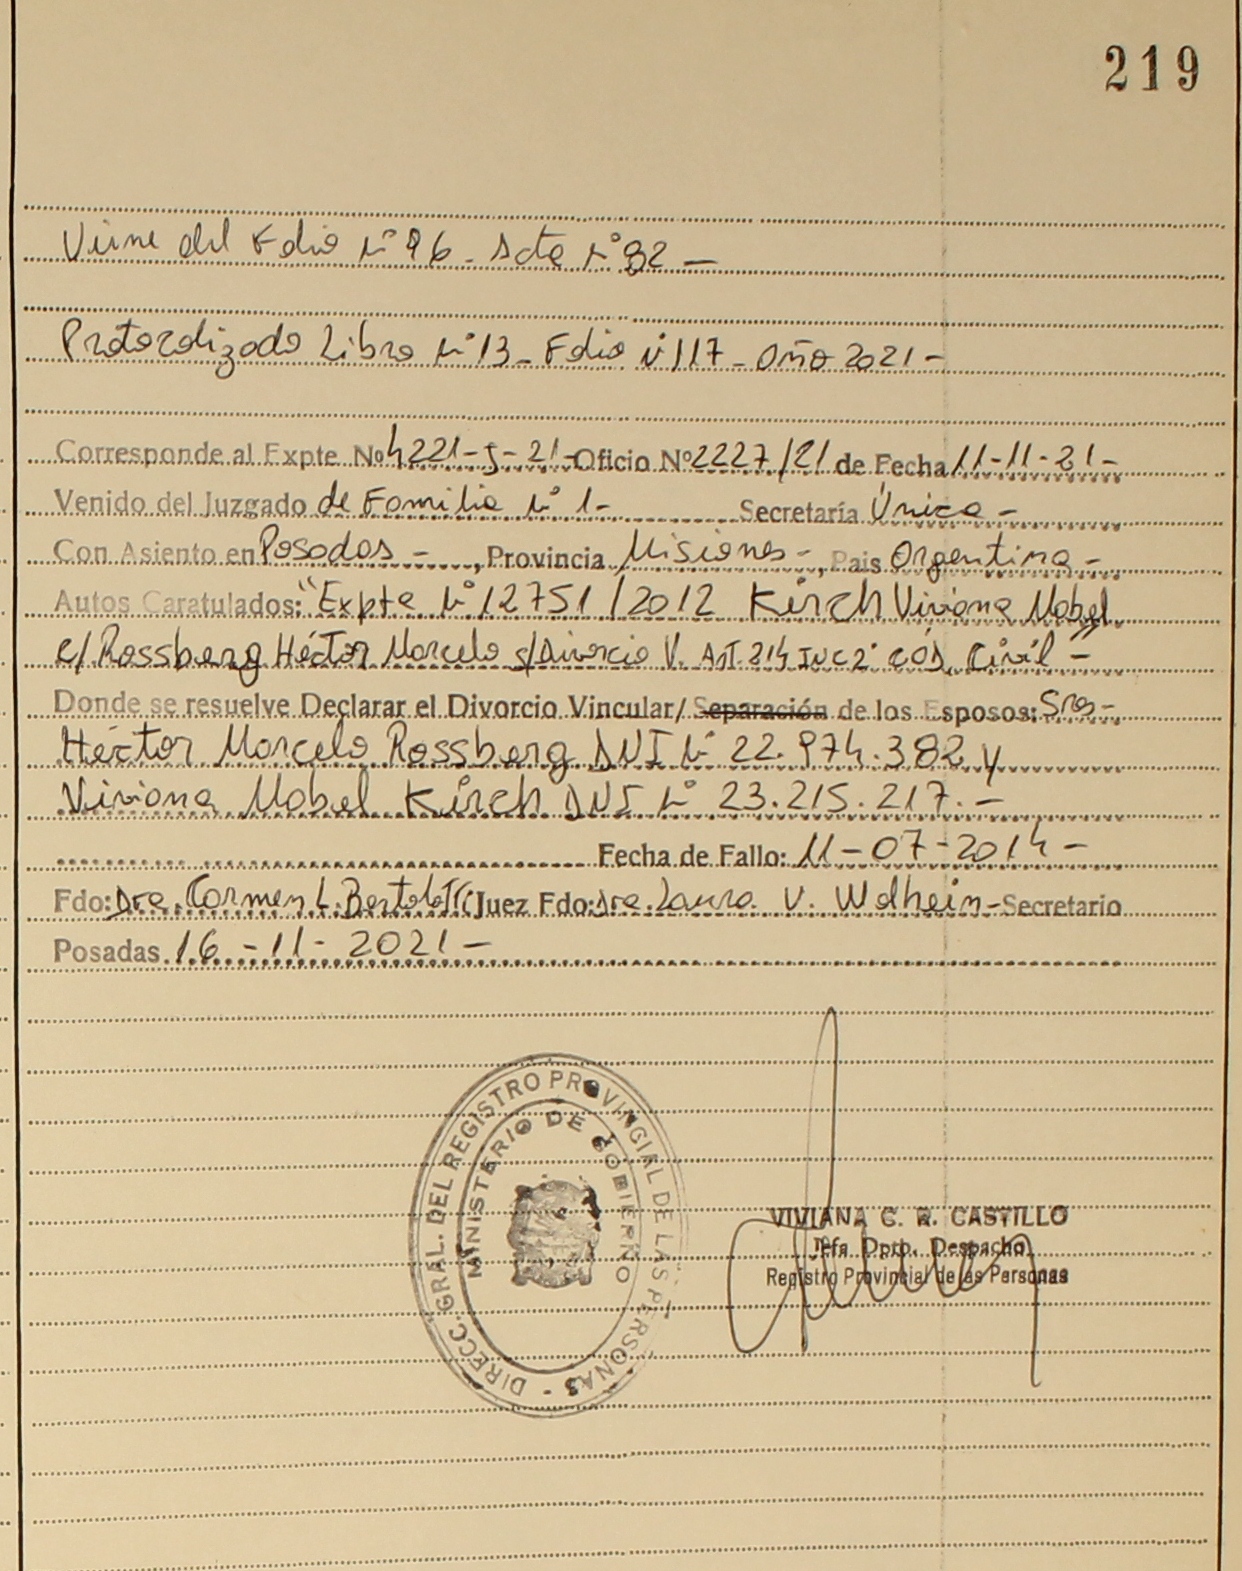 219
Viene del Folio N° 96 - Acta N° 92 -
Protocolizado Libro N° 13 - Folio N° 117 - Año 2021 -
Corresponde al Expte Nº 4221-J-21- Oficio Nº 2227/21 de Fecha 11-11-21-
Venido del Juzgado de Familia N° 1- Secretaría Única -
Con Asiento en Posadas -, Provincia Misiones -, Pais Argentina -
Autos Caratulados: "Expte N° 12751/2012 Kirch Viviana Mabel
c/ Rossberg Héctor Marcelo s/Divorcio V. Art. 214 Inc 2° Cód. Civil" -
Donde se resuelve Declarar el Divorcio Vincular/ Separación de los Esposos: Sres-
Héctor Marcelo Rossberg DNI N° 22.974.382 y
Viviana Mabel Kirch DNI N° 23.215.217.-
Fecha de Fallo: 11-07-2014 -
Fdo: Dra. Carmen L. Bertolotti Juez Fdo: Dra. Laura V. Wolhein - Secretario
Posadas 16-11-2021-
DIRECC. GRAL. DEL REGISTRO PROVINCIAL DE LAS PERSONAS -
MINISTERIO DE GOBIERNO
VIVIANA C. R. CASTILLO
Jefa Dpto. Despacho
Registro Provincial de las Personas